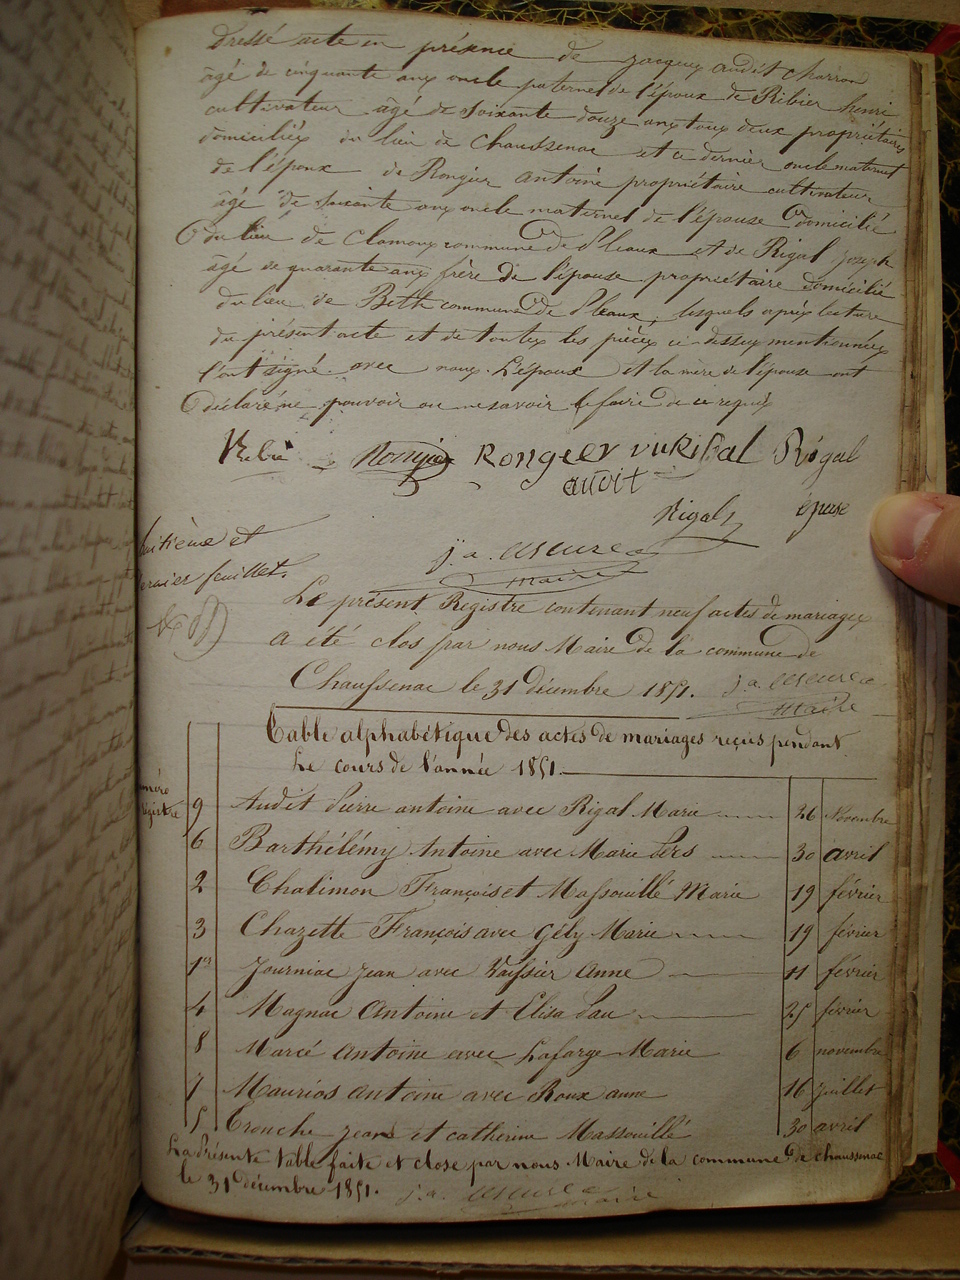 Dressé acte en présence de Jacques Audit charron
âgé de cinquante ans oncle paternel de l'époux de Ribier henri
cultivateur âgé de soixante douze ans tous deux propriétaires
domiciliés du lieu de Chaussenac et ce dernier oncle maternel
de l'époux de Rongier Antoine propriétaire cultivateur
âgé de soixante ans oncle maternel de l'épouse Domicilié
Du lieu de commune De Pleaux et de Rigal Joseph
âgé de quarante ans frère de l'épouse propriétaire domicilié
du lieu de Beth commune De Pleaux, lesquels après lecture
du présent acte et de toutes les pièces ci-dessus mentionnées
l'ont signé avec nous. L'époux et la mère de l'épouse ont
Déclaré ne pouvoir ou ne savoir le faire de ce requis
Rebie Rongier Rigal
audit
Rigal épuse
j.a.
maire
huitième et
dernier feuillet.
Le présent Registre contenant neuf actes de mariages
a été clos par nous Maire de la commune de
Chaussenac le 31 décembre 1851. j.a.
maire
Table alphabétique des actes de mariages reçus pendant
Le cours de l'année 1851.
numéro
registre
9 Audit Pierre antoine avec Rigal Marie 26 Novembre
6 Barthélémy Antoine avec Marie Pers 30 avril
2 Chalimon François et Massouillé Marie 19 février
3 Chazette François avec Gély Marie 19 février
1er Journiac Jean avec Vaissier Anne 11 février
4 Magnac Antoine et Elisa Pau 25 février
8 Marcé Antoine avec Lafarge Marie 6 novembre
7 Mauriós Antoine avec Roux anne 16 juillet
5 Tronche Jean et catherine Massouillé 30 avril
La Présente table faite et close par nous Maire de la commune de chaussenac
le 31 décembre 1851. j.a.
maire